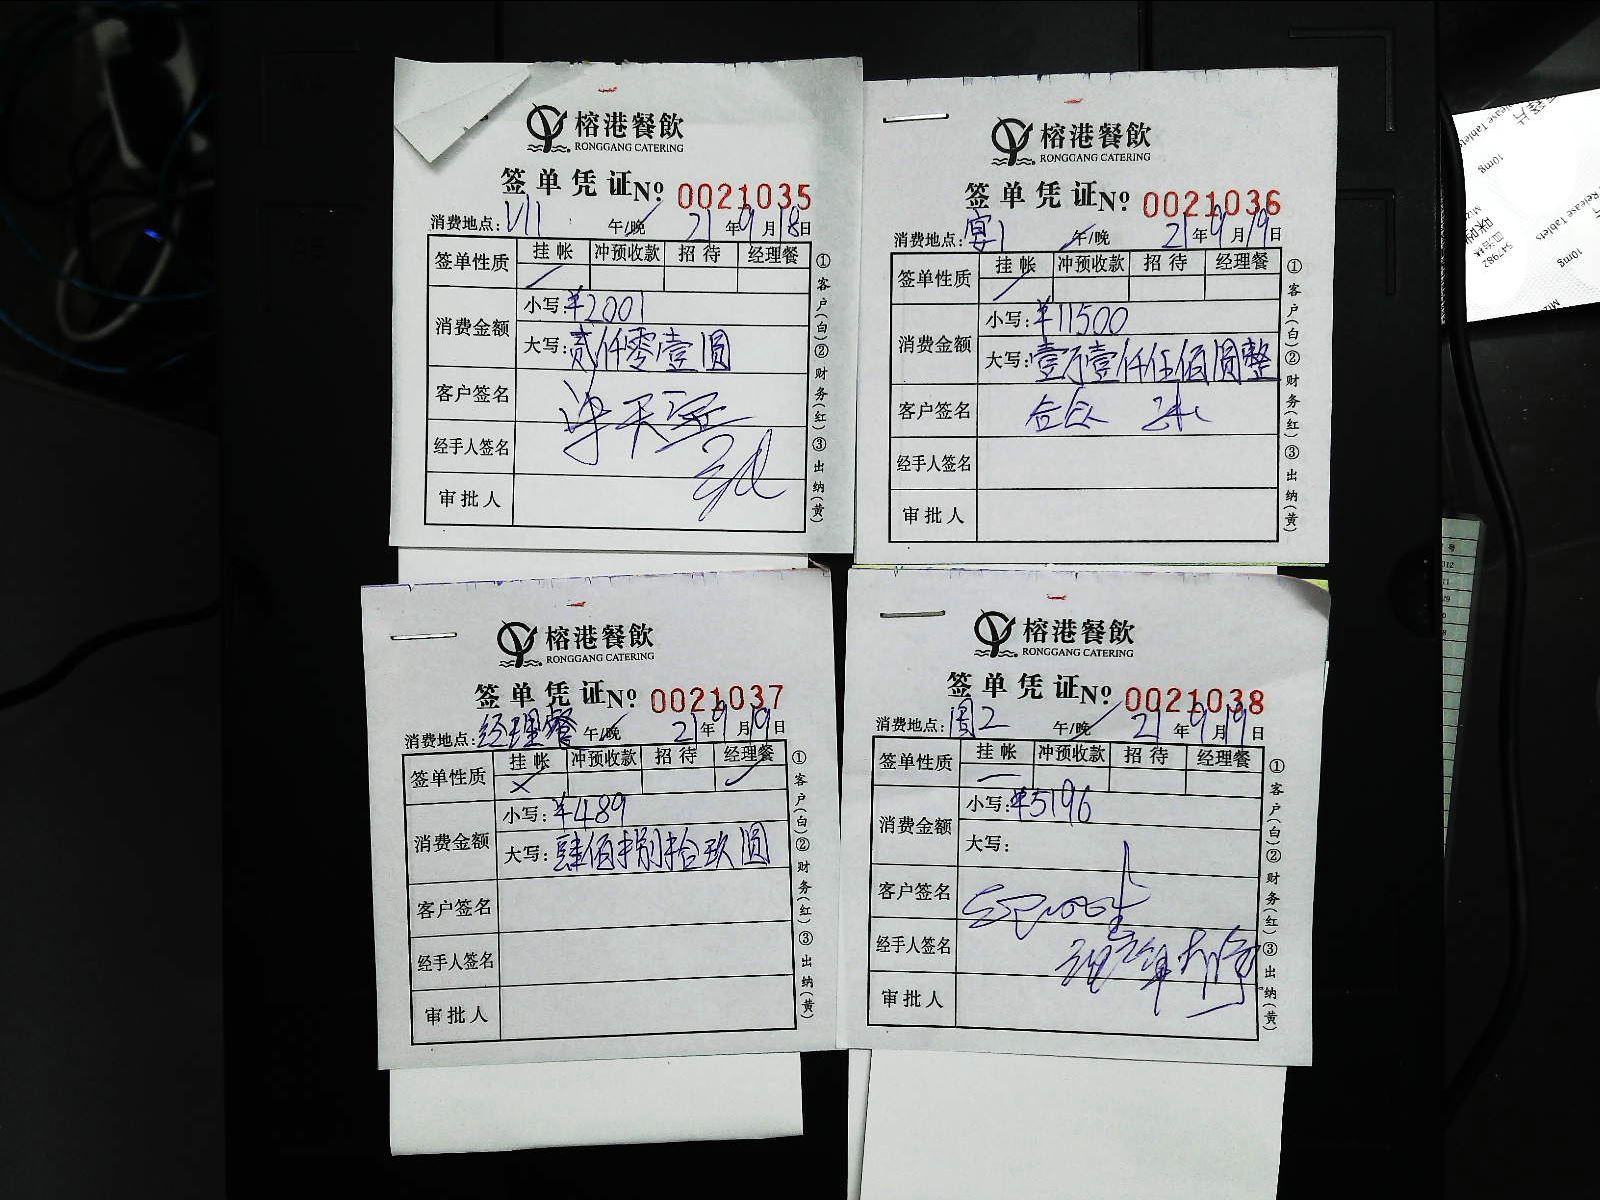 榕港餐飲
RONGGANG CATERING
签单凭证 Nº 0021035
消费地点: V11 午/晚 21年9月18日
签单性质 挂帐 冲预收款 招待 经理餐
消费金额 小写: ¥2001
大写: 贰仟零壹圆
客户签名
经手人签名
审批人
①客户(白)②财务(红)③出纳(黄)
榕港餐飲
RONGGANG CATERING
签单凭证 Nº 0021036
消费地点: 宴1 午/晚 21年9月19日
签单性质 挂帐 冲预收款 招待 经理餐
消费金额 小写: ¥11500
大写: 壹万壹仟伍佰圆整
客户签名
经手人签名
审批人
①客户(白)②财务(红)③出纳(黄)
榕港餐飲
RONGGANG CATERING
签单凭证 Nº 0021037
消费地点: 经理餐 午/晚 21年9月19日
签单性质 挂帐 冲预收款 招待 经理餐
消费金额 小写: ¥489
大写: 肆佰捌拾玖圆
客户签名
经手人签名
审批人
①客户(白)②财务(红)③出纳(黄)
榕港餐飲
RONGGANG CATERING
签单凭证 Nº 0021038
消费地点: 阅2 午/晚 21年9月19日
签单性质 挂帐 冲预收款 招待 经理餐
消费金额 小写: ¥5196
大写:
客户签名
经手人签名
审批人
①客户(白)②财务(红)③出纳(黄)
10mg
Release Tablets
10mg